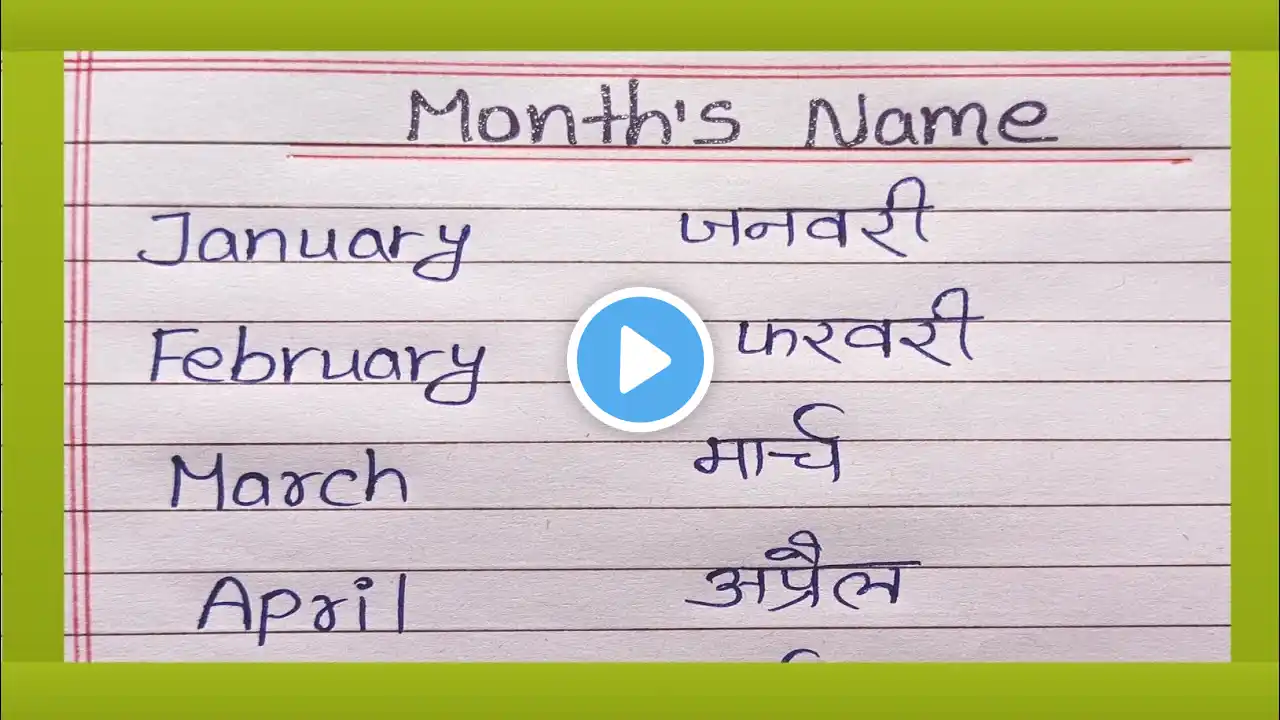 Month's Name
January जनवरी
February फरवरी
March मार्च
April अप्रैल